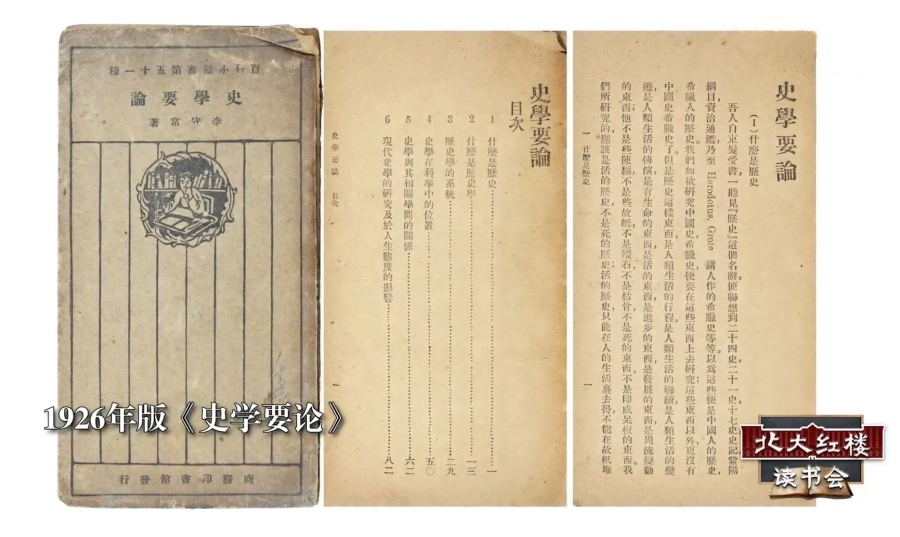 百科小叢書第五十一種
史學要論
李守常著
商務印書館發行
史學要論
目次
1 什麼是歷史……………一
2 什麼是歷史學……………一三
3 歷史學的系統……………二九
4 史學在科學中的位置……………五〇
5 史學與其相關學問的關係……………六二
6 現代史學的研究及於人生態度的影響……………八二
史學要論 目次
一
史學要論
(1)什麼是歷史
吾人自束髮受書一聽見『歷史』這個名辭便聯想到二十四史二十一史十七史史記紫陽
綱目資治通鑑乃至 Herodotus, Grote 諸人作的希臘史等等。以爲這些便是中國人的歷史
希臘人的歷史。我們如欲研究中國史希臘史便要在這些東西上去研究;這些東西以外更沒有
中國史希臘史了。但是歷史這樣東西是人類生活的行程是人類生活的聯續是人類生活的變
遷是人類生活的傳演是有生命的東西是活的東西是進步的東西是發展的東西是周流變動
的東西;他不是些陳編不是些故紙不是殭石不是枯骨不是死的東西不是印成呆板的東西。我
們所研究的應該是活的歷史不是死的歷史;活的歷史只能在人的生活裏去得不能在故紙堆
一 什麼是歷史
一
1926年版《史学要论》
北大红楼
读书会